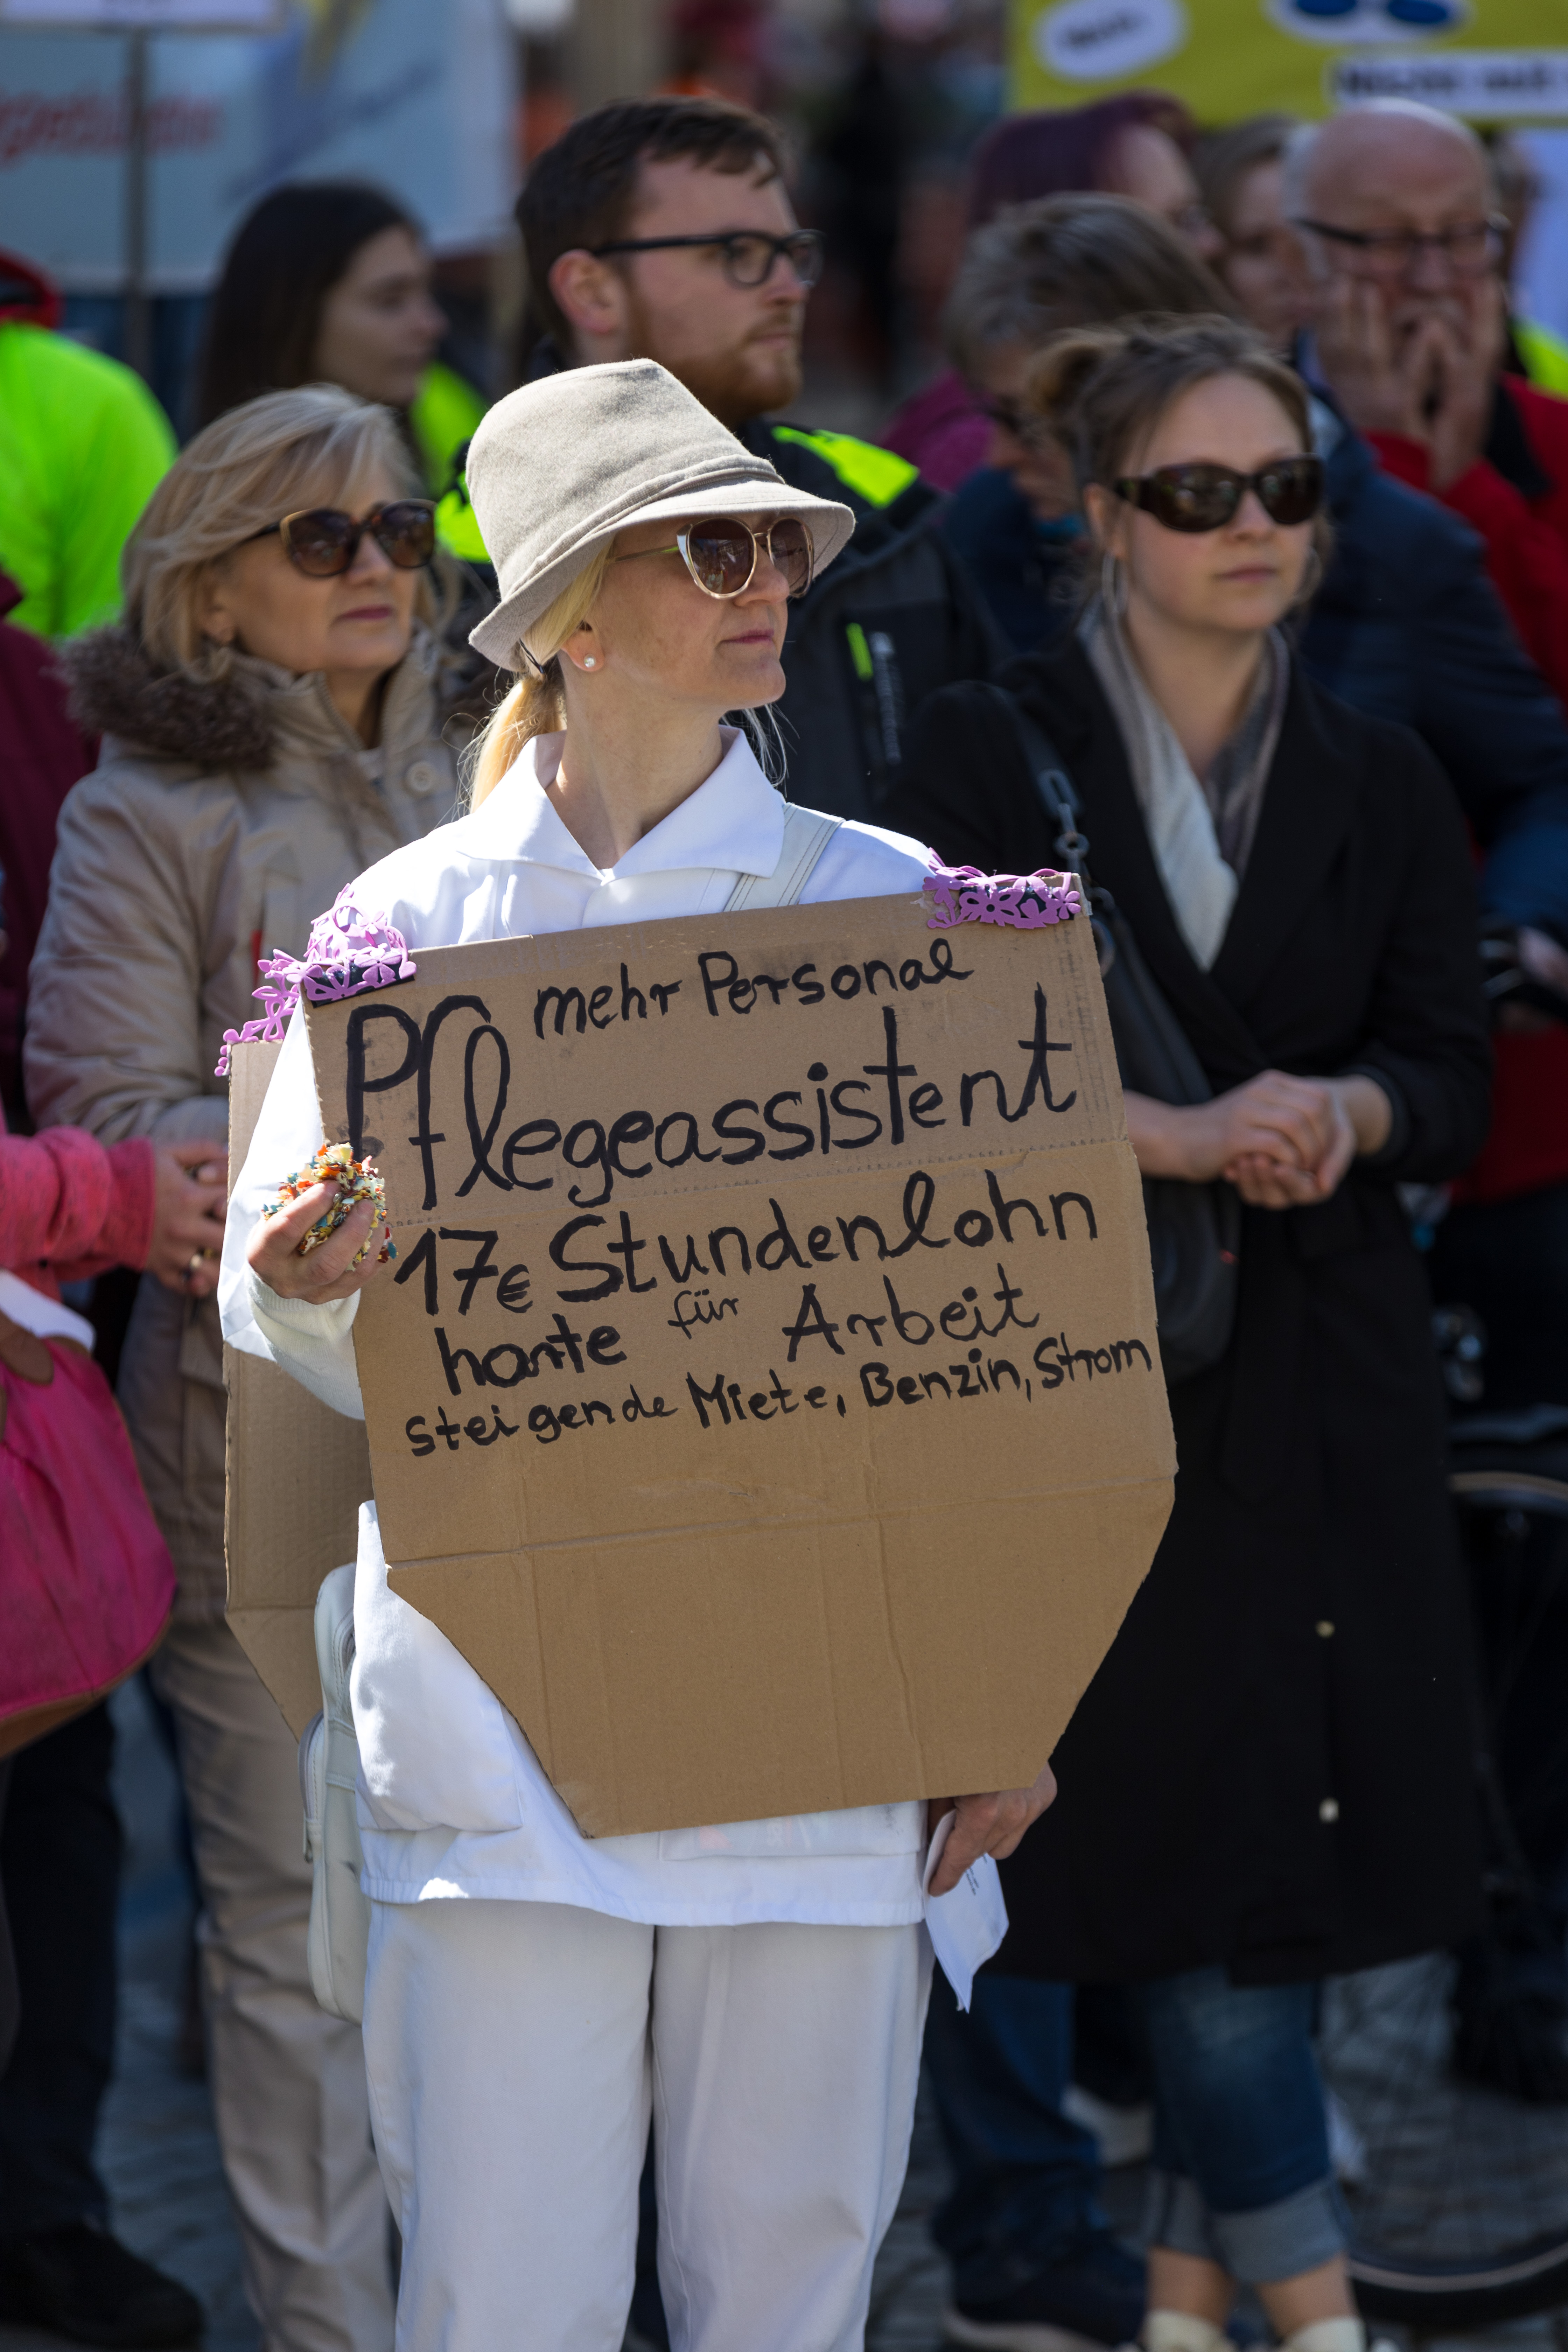 mehr Personal
Pflegeassistent
17€ Stundenlohn
harte für Arbeit
steigende Miete, Benzin, Strom